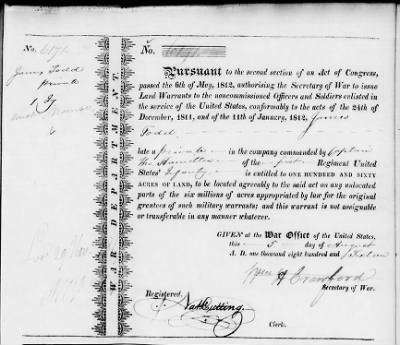 No. 6171
James Todd
No. 6171
PURSUANT to the second section of an Act of Congress,
passed the 6th of May, 1812, authorising the Secretary of War to issue
Land Warrants to the noncommissioned Officers and Soldiers enlisted in
the service of the United States, conformably to the acts of the 24th of
December, 1811, and of the 11th of January, 1812, James
Todd
late a private in the company commanded by Captain
Hamilton of the first Regiment United
States' Infantry is entitled to ONE HUNDRED AND SIXTY
ACRES OF LAND, to be located agreeably to the said act on any unlocated
parts of the six millions of acres appropriated by law for the original
grantees of such military warrants; and this warrant is not assignable
or transferable in any manner whatever.
GIVEN at the War Office of the United States,
this 5 day of August
A. D. one thousand eight hundred and sixteen
Wm H Crawford
Secretary of War.
Registered.
Nat Cutting.
Clerk.
WAR DEPARTMENT